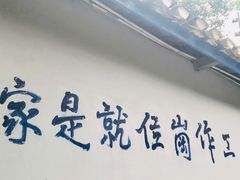 工作崗位就是家